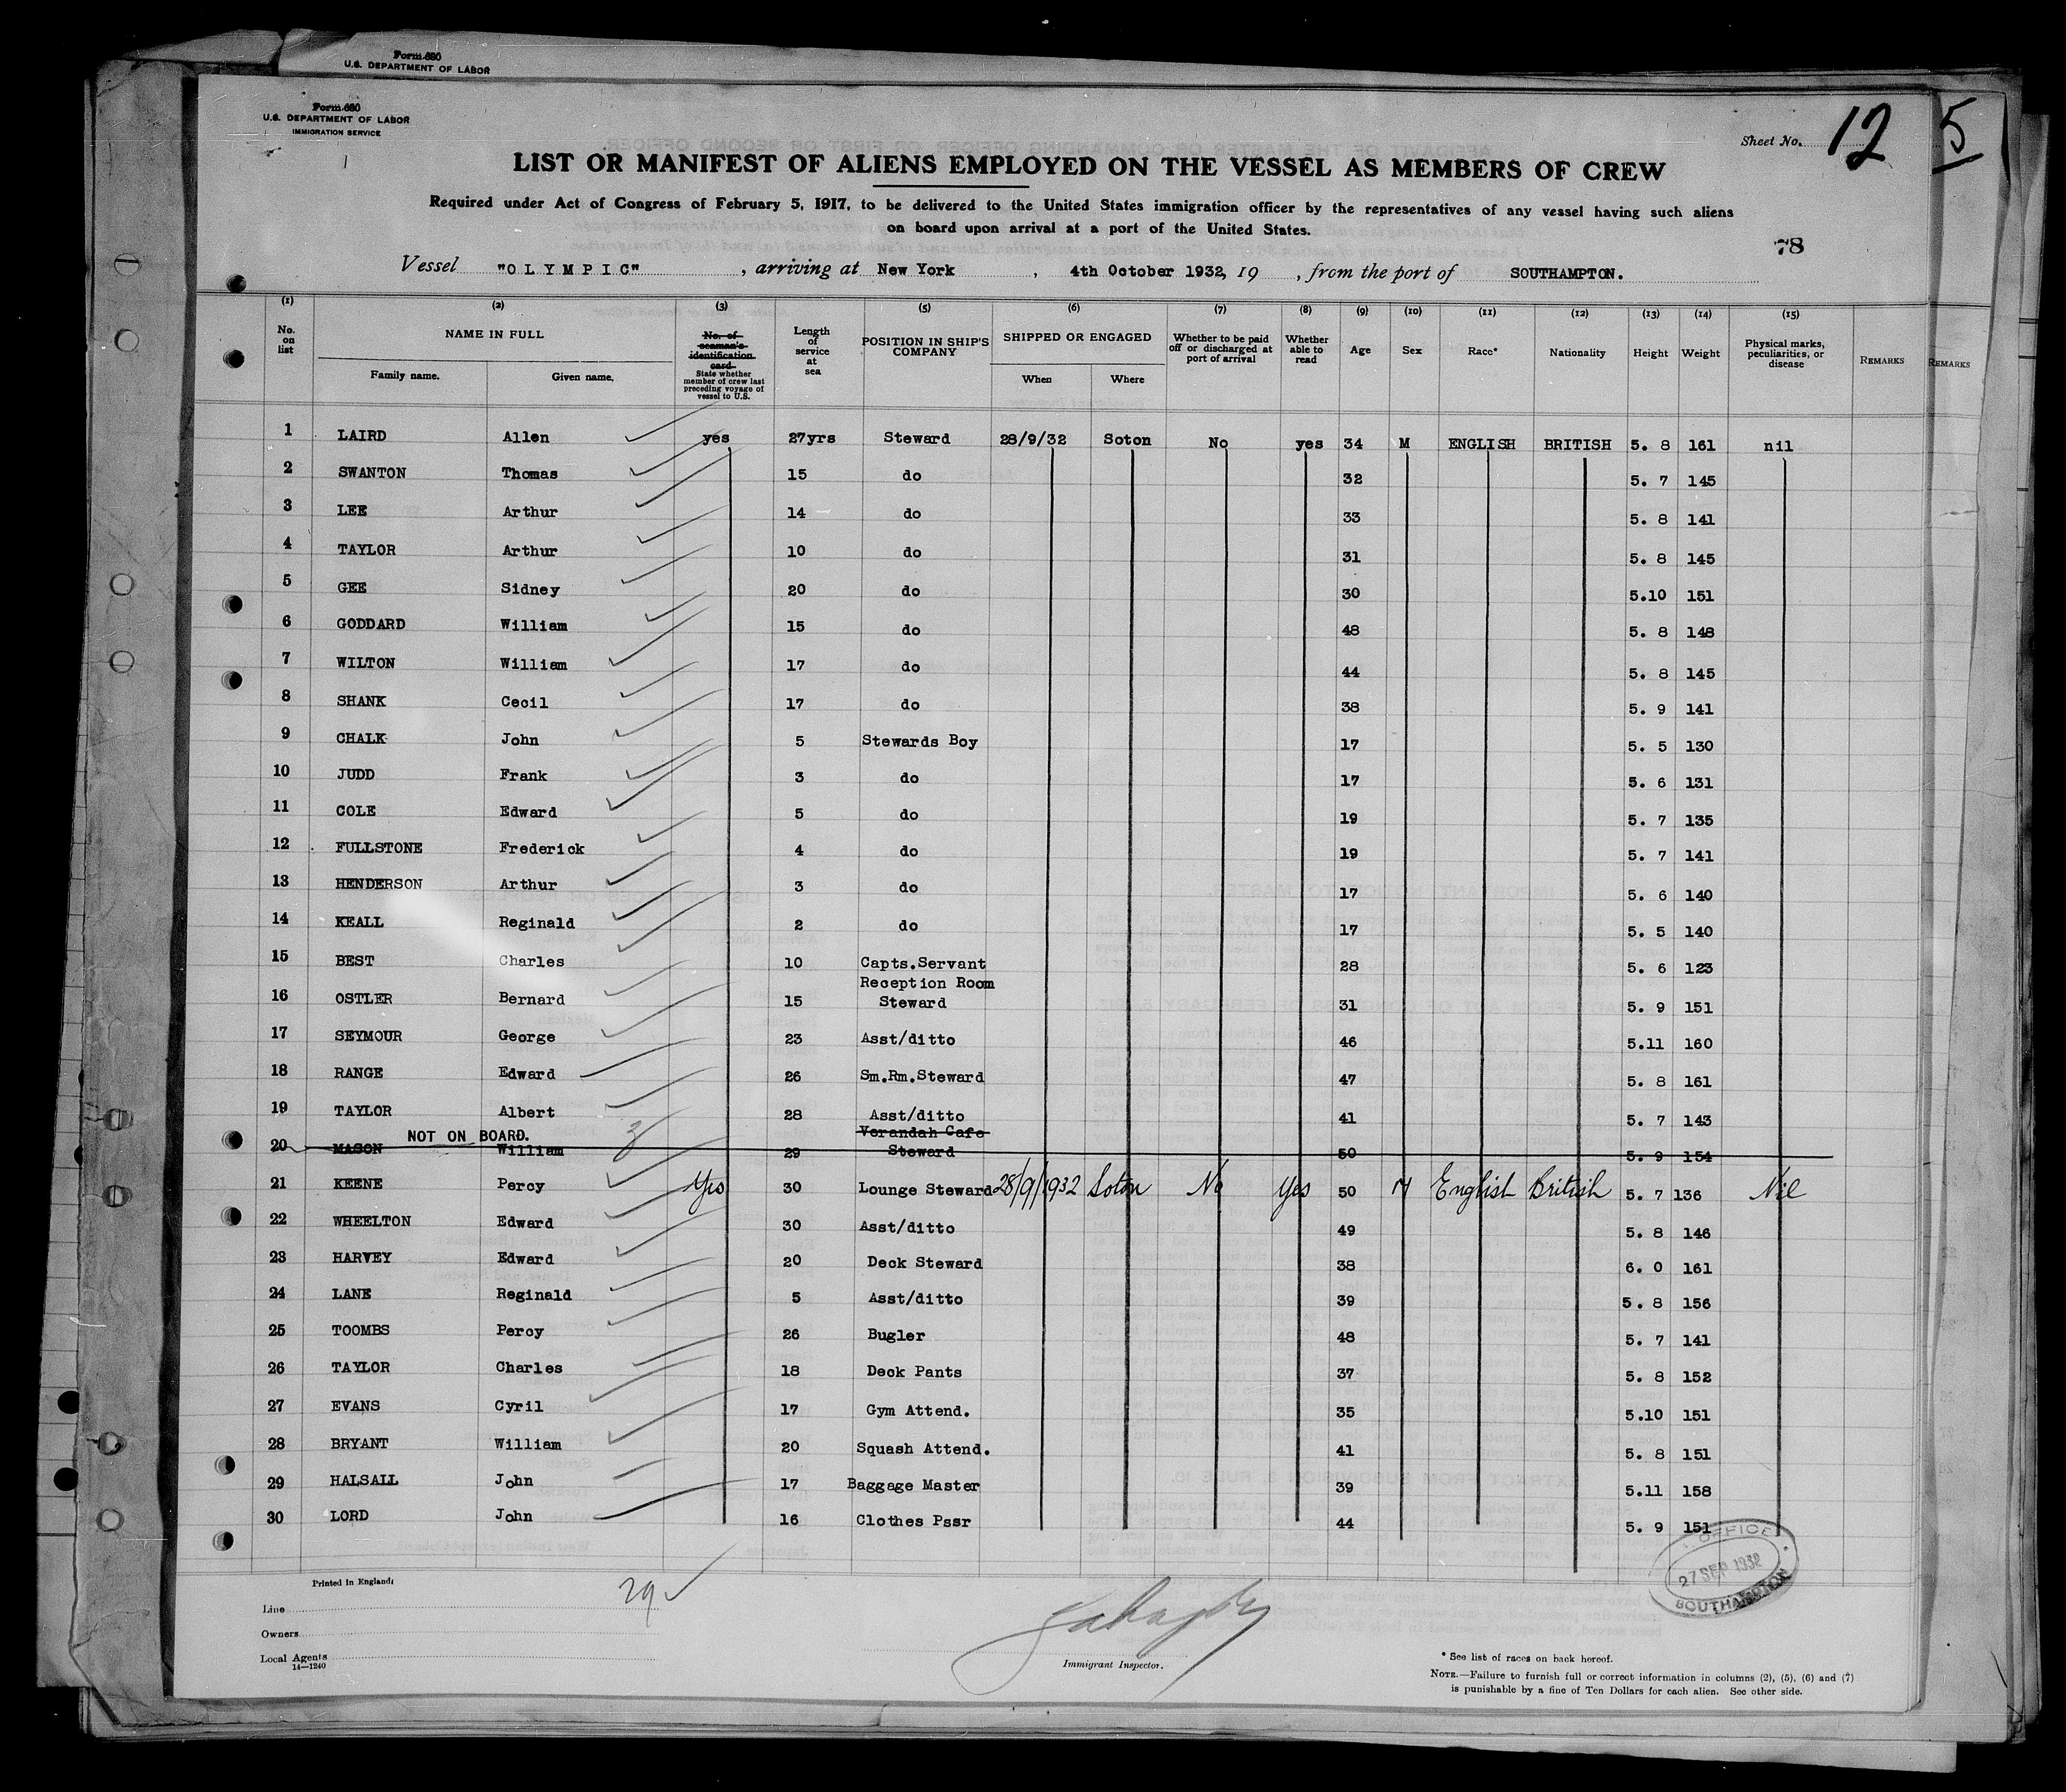 Form 680
U.S. DEPARTMENT OF LABOR
Form 680
U.S. DEPARTMENT OF LABOR
IMMIGRATION SERVICE
Sheet No. 12
5
LIST OR MANIFEST OF ALIENS EMPLOYED ON THE VESSEL AS MEMBERS OF CREW
Required under Act of Congress of February 5, 1917, to be delivered to the United States immigration officer by the representatives of any vessel having such aliens
on board upon arrival at a port of the United States.
78
Vessel "OLYMPIC", arriving at New York, 4th October 1932, 19 , from the port of SOUTHAMPTON.
(1) No. on list
(2) NAME IN FULL
Family name. Given name.
(3) No. of seaman's identification card State whether member of crew last preceding voyage of vessel to U.S.
Length of service at sea
(5) POSITION IN SHIP'S COMPANY
(6) SHIPPED OR ENGAGED
When Where
(7) Whether to be paid off or discharged at port of arrival
(8) Whether able to read
(9) Age
(10) Sex
(11) Race*
(12) Nationality
(13) Height
(14) Weight
(15) Physical marks, peculiarities, or disease
REMARKS
REMARKS
1 LAIRD Allen yes 27yrs Steward 28/9/32 Soton No yes 34 M ENGLISH BRITISH 5. 8 161 nil
2 SWANTON Thomas 15 do 32 5. 7 145
3 LEE Arthur 14 do 33 5. 8 141
4 TAYLOR Arthur 10 do 31 5. 8 145
5 GEE Sidney 20 do 30 5.10 151
6 GODDARD William 15 do 48 5. 8 148
7 WILTON William 17 do 44 5. 8 145
8 SHANK Cecil 17 do 38 5. 9 141
9 CHALK John 5 Stewards Boy 17 5. 5 130
10 JUDD Frank 3 do 17 5. 6 131
11 COLE Edward 5 do 19 5. 7 135
12 FULLSTONE Frederick 4 do 19 5. 7 141
13 HENDERSON Arthur 3 do 17 5. 6 140
14 KEALL Reginald 2 do 17 5. 5 140
15 BEST Charles 10 Capts.Servant 28 5. 6 123
Reception Room
16 OSTLER Bernard 15 Steward 31 5. 9 151
17 SEYMOUR George 23 Asst/ditto 46 5.11 160
18 RANGE Edward 26 Sm.Rm.Steward 47 5. 8 161
19 TAYLOR Albert 28 Asst/ditto 41 5. 7 143
NOT ON BOARD. Verandah Cafe
20 MASON William 29 Steward 50 5. 9 154
21 KEENE Percy Yes 30 Lounge Steward 28/9/1932 Soton No Yes 50 M English British 5. 7 136 Nil
22 WHEELTON Edward 30 Asst/ditto 49 5. 8 146
23 HARVEY Edward 20 Deck Steward 38 6. 0 161
24 LANE Reginald 5 Asst/ditto 39 5. 8 156
25 TOOMBS Percy 26 Bugler 48 5. 7 141
26 TAYLOR Charles 18 Deck Pants 37 5. 8 152
27 EVANS Cyril 17 Gym Attend. 35 5.10 151
28 BRYANT William 20 Squash Attend. 41 5. 8 151
29 HALSALL John 17 Baggage Master 39 5.11 158
30 LORD John 16 Clothes Pssr 44 5. 9 151
OFFICE
27 SEP 1932
SOUTHAMPTON
Printed in England:
29
Line
Owners
Local Agents
14—1240
Immigrant Inspector.
* See list of races on back hereof.
NOTE.—Failure to furnish full or correct information in columns (2), (5), (6) and (7)
is punishable by a fine of Ten Dollars for each alien. See other side.